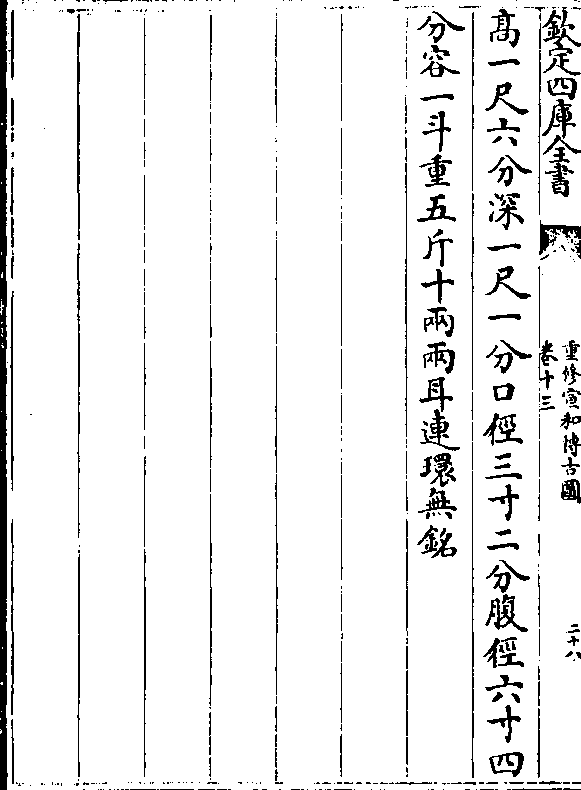 欽定四庫全書
重修宣和博古圖
卷十三
二十八
髙一尺六分深一尺一分口徑三寸二分腹徑六寸四
分容一斗重五斤十兩兩耳連環無銘